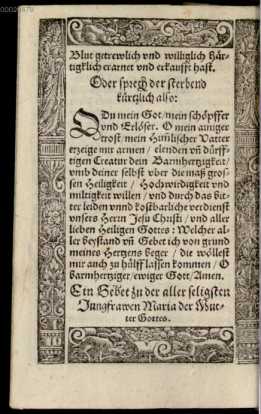 Blut getrewlich vnd williglich härtigklich erarnet vnd erkaufft hast.
Oder sprech der sterbend
kürtzlich also:
O Du mein Got/mein schöpffer
vnd Erlöser. O mein ainiger
trost/mein Him̃lischer Vatter
erzeige mir armen / elenden vñ dürfftigen
Creatur dein Barmhertzigkeit/
vnnd deiner selbst vber die maß grossen
Heiligkeit / Hochwirdigkeit vnd
miltigkeit willen / vnd durch das bitter
leiden vnnd kostbarliche verdienst
vnsers Herrn Jesu Christi / vnd aller
lieben Heiligen Gottes : Welcher aller
beystand vñ Gebet ich von grund
meines Hertzens beger / die wöllest
mir auch zu hülff lassen kommen / O
barmhertziger/ewiger Gott/Amen.
Ein Gebet zu der aller seligsten
Jungfrawen Maria der Mutter
Gottes.